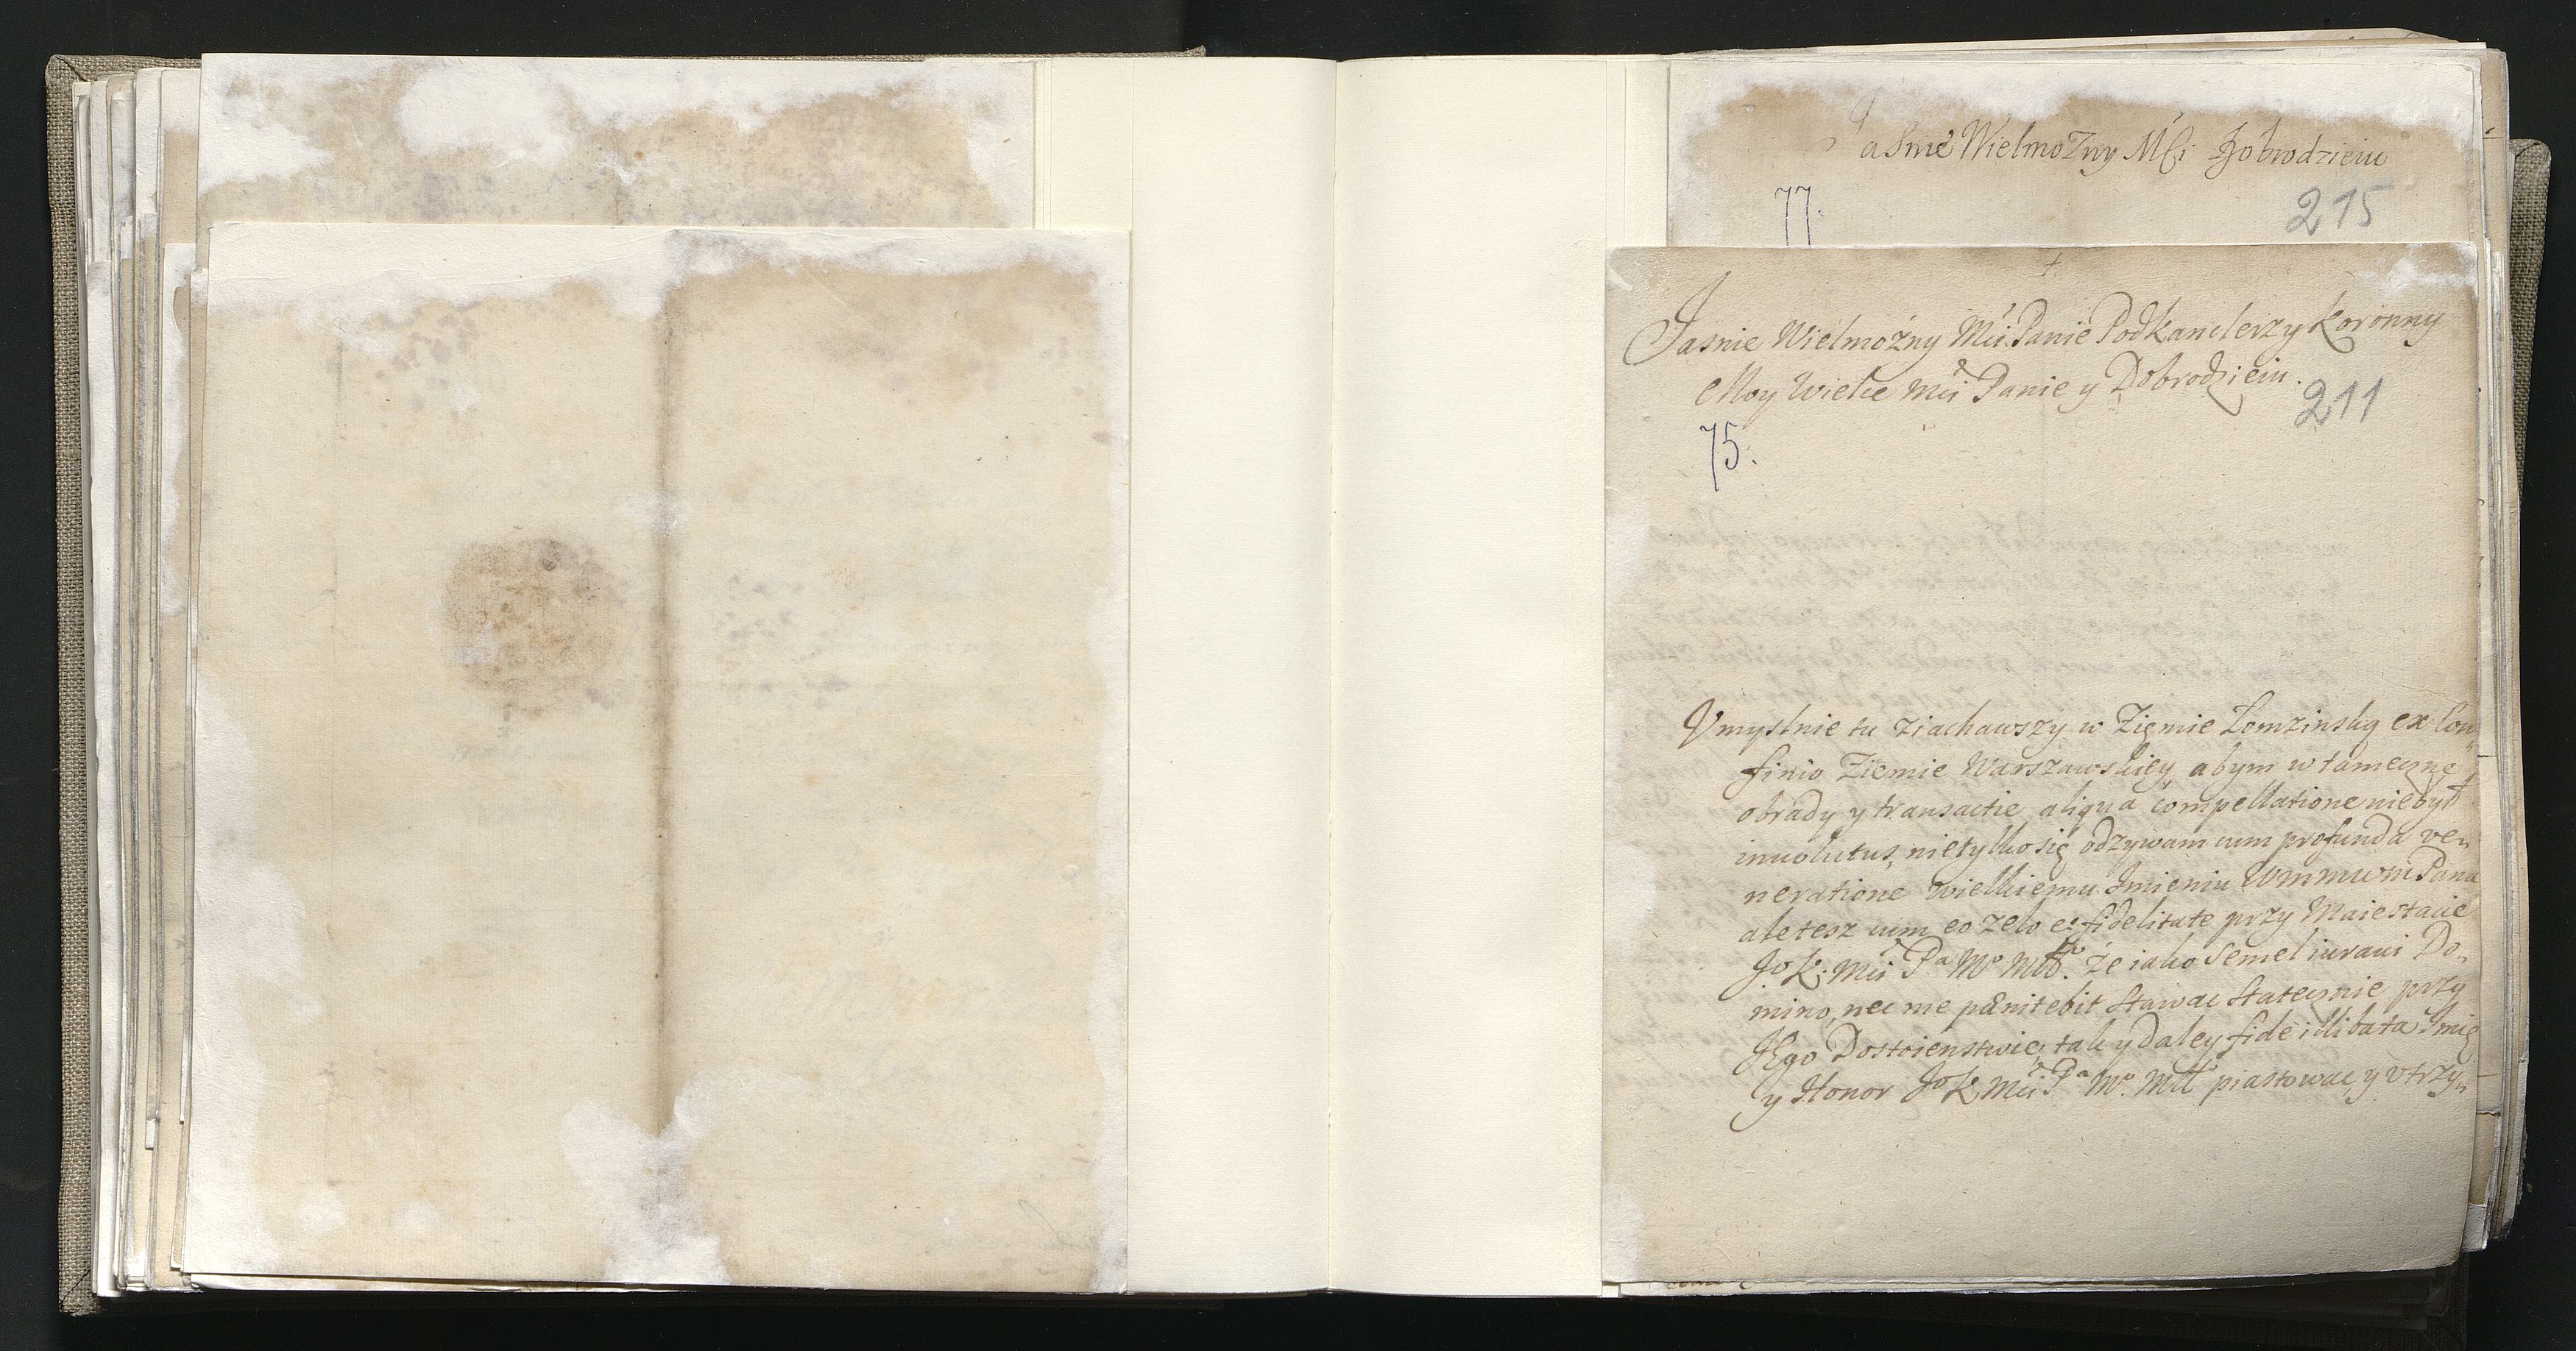 Jasnie Wielmozny Mci Dobrodzieiu
77.
215
+
Jasnie Wielmożny Mci Panie Podkanclerzy Koronny
Moy Wielce Mci Panie y Dobrodzieiu.
211
75.
Vmyslnie tu ziachawszy w Ziemie Łomzinską ex Con„
finio Ziemie Warszawskiey, abym w tameczne
obrady y transactie aliqua compellatione niebył
inuolutus, nietylko się odzywam cum profunda ve„
neratione wielkiemu Jmieniu Pana
ale tesz cum eo zelo et fidelitate przy Maiestacie
Jo K. Mci Pa Mo że iako semel iuraui Do„
mino, nec me pænitebit stawac statecznie przy
JEgo Dostoienstwie, tak y daley fide illibata Jmię
y Honor Jo K Mci Pa Mo piastowac y vtrzy„